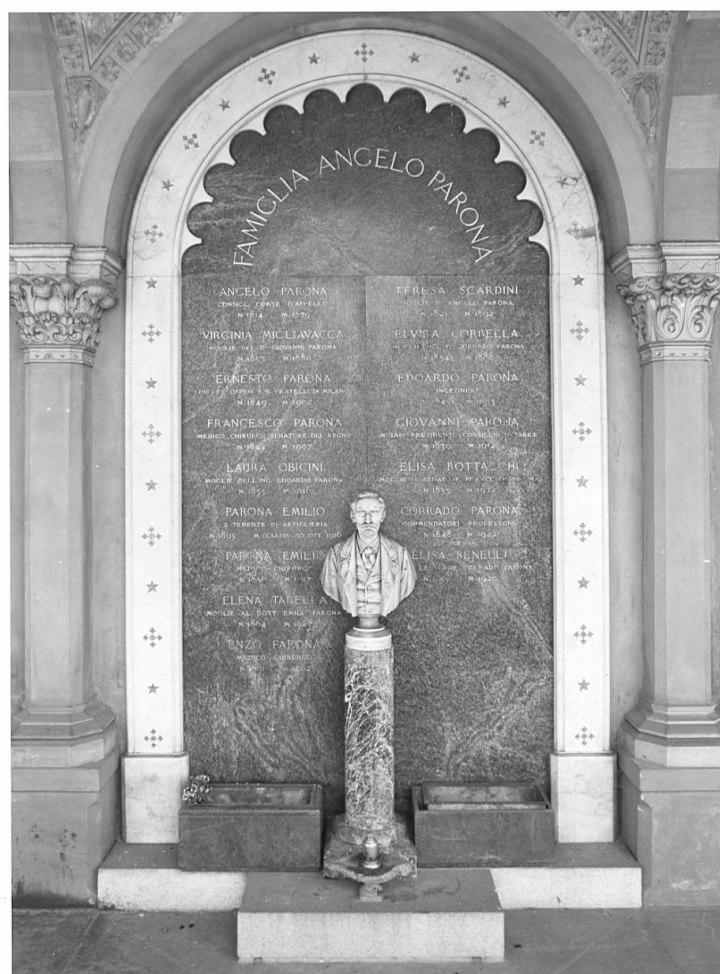 FAMIGLIA ANGELO PARONA
ANGELO PARONA
CONSIGL. CORTE D'APPELLO
N. 1814 M. 1870
VIRGINIA MIGLIAVACCA
MOGLIE DEL D. GIOVANNI PARONA
N. 1857 M. 1880
ERNESTO PARONA
FRATELLI DI MILANO
N. 1849 M. 1902
FRANCESCO PARONA
MEDICO CHIRURGO SENATORE DEL REGNO
N. 1842 M. 1907
LAURA OBICINI
MOGLIE DELL'ING. EDOARDO PARONA
N. 1855 M. 1916
PARONA EMILIO
S. TENENTE DI ARTIGLIERIA
N. 1895 M. (CARSO) 30 OTT. 1916
PARONA EMILIO
MEDICO CHIRURGO
ELENA TARELLA
MOGLIE AL DOTT. EMILIO PARONA
N. 1864 M. 1928
ENZO PARONA
MEDICO CHIRURGO
TERESA SCARDINI
MOGLIE DI ANGELO PARONA
M. 1892
ELVIRA CORBELLA
PARONA
N. 1854
EDOARDO PARONA
INGEGNERE
GIOVANNI PARONA
NOTAIO PRESIDENTE CONSIGLIO
N. 1850 M. 1912
ELISA BOTTACCHI
MOGLIE
N. 1855 M. 1922
CORRADO PARONA
COMMENDATORE PROFESSORE
N. 1848 M. 1922
ELISA BENELLI
CORRADO PARONA